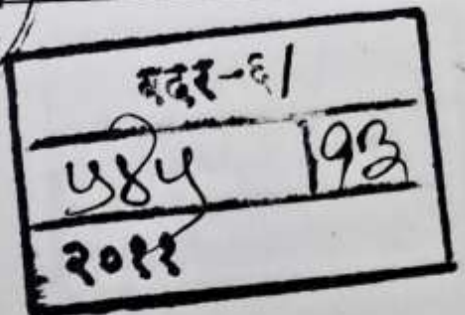 बदर-६/
५४५ १३
२०११